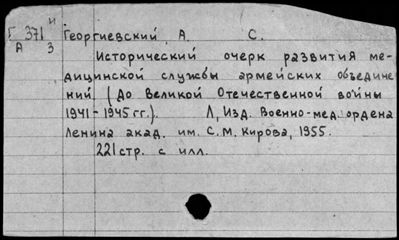 Г 371 И
А 3
Георгиевский, А. С.
Исторический очерк развития ме-
дицинской службы армейских объедине
ний. (До Великой Отечественной войны
1941-1945 гг.). Л, Изд. Военно-мед. ордена
Ленина акад. им. С.М. Кирова, 1955.
221 стр. с илл.